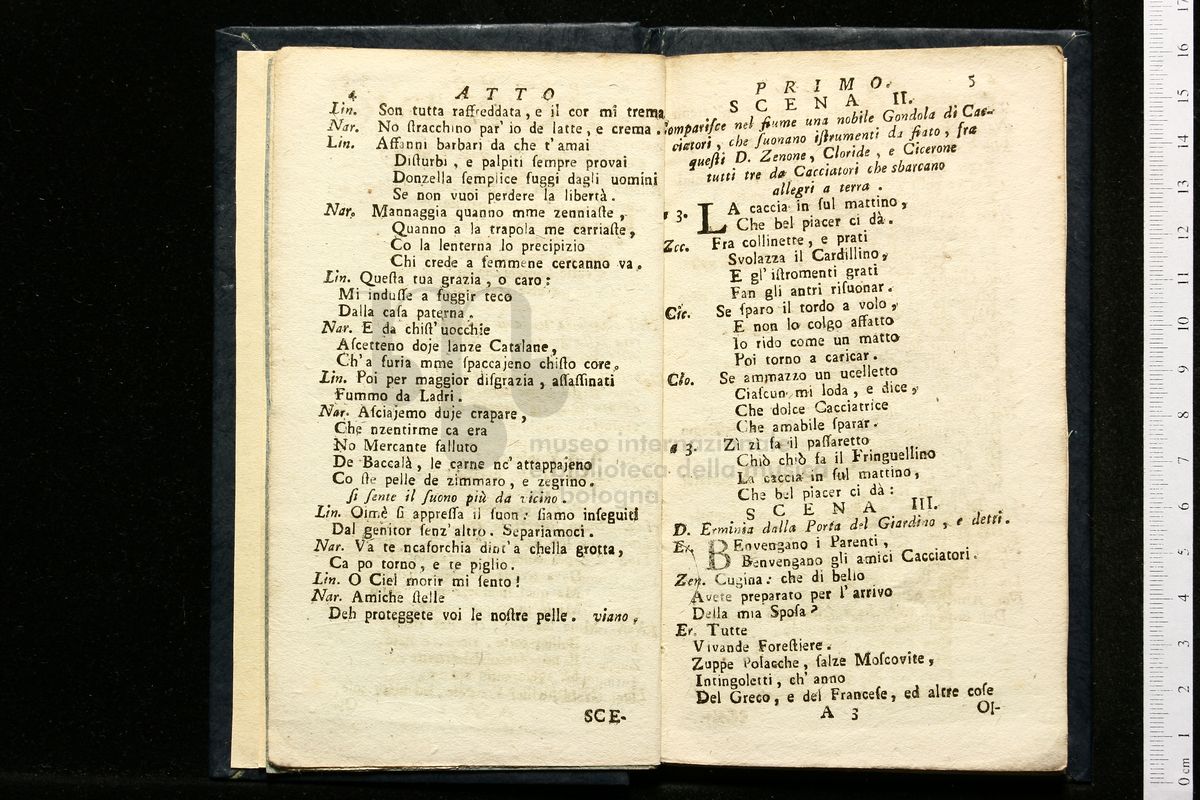 4 ATTO
Lin. Son tutta raffreddata, e il cor mi trema
Nar. No ſtracchino par' io de latte, e crema.
Lin. Affanni barbari da che t'amai
Diſturbi, e palpiti ſempre provai
Donzella ſemplice fuggi dagli uomini
Se non vuoi perdere la libertà.
Nar. Mannaggia quanno mme zenniaſte,
Quanno a la trapola me carriaſte,
Co la lenterna lo precipizio
Chi crede a femmene cercanno va.
Lin. Queſta tua grazia, o caro:
Mi induſſe a fuggir teco
Dalla caſa paterna.
Nar. E da chiſt'uocchie
Aſcetteno doje lanze Catalane,
Ch'a furia mme ſpaccajeno chiſto core.
Lin. Poi per maggior diſgrazia, aſſaſſinati
Fummo da Ladri.
Nar. Aſciajemo duje crapare,
Che nzentirme ca era
No Mercante falluto
De Baccalà, le carne nc'attappajeno
Co ſte pelle de zimmaro, e zegrino.
ſi ſente il ſuono più da vicino.
Lin. Oimè ſi appreſſa il ſuon: ſiamo inſeguiti
Dal genitor ſenz'altro. Separiamoci.
Nar. Va te ncaforchia dint'a chella grotta,
Ca po torno, e te piglio.
Lin. O Ciel morir mi ſento!
Nar. Amiche ſtelle
Deh proteggete voi le noſtre pelle. viano.
SCE-
PRIMO. 5
SCENA II.
Compariſce nel fiume una nobile Gondola di Cac-
ciatori, che ſuonano iſtrumenti da fiato, fra
queſti D. Zenone, Cloride, e Cicerone
tutti tre da Cacciatori che sbarcano
allegri a terra.
a 3. LA caccia in ſul mattino,
Che bel piacer ci dà.
Zec. Fra collinette, e prati
Svolazza il Cardillino,
E gl'iſtromenti grati
Fan gli antri riſuonar.
Cic. Se ſparo il tordo a volo,
E non lo colgo affatto
Io rido come un matto
Poi torno a caricar.
Clo. Se ammazzo un ucelletto
Ciaſcun mi loda, e dice,
Che dolce Cacciatrice
Che amabile ſparar.
a 3. Zì zì fa il paſſaretto
Chiò chiò fa il Fringuellino
La caccia in ſul mattino,
Che bel piacer ci dà:
SCENA III.
D. Erminia dalla Porta del Giardino, e detti.
Er. BEnvengano i Parenti,
Benvengano gli amici Cacciatori.
Zen. Cugina: che di bello
Avete preparato per l'arrivo
Della mia Spoſa?
Er. Tutte
Vivande Foreſtiere.
Zuppe Polacche, ſalze Moſcovite,
Intingoletti, ch'anno
Del Greco, e del Franceſe, ed altre coſe
A 3 OI-
museo internazionale
e biblioteca della musica
di bologna
0 cm 1 2 3 4 5 6 7 8 9 10 11 12 13 14 15 16 17